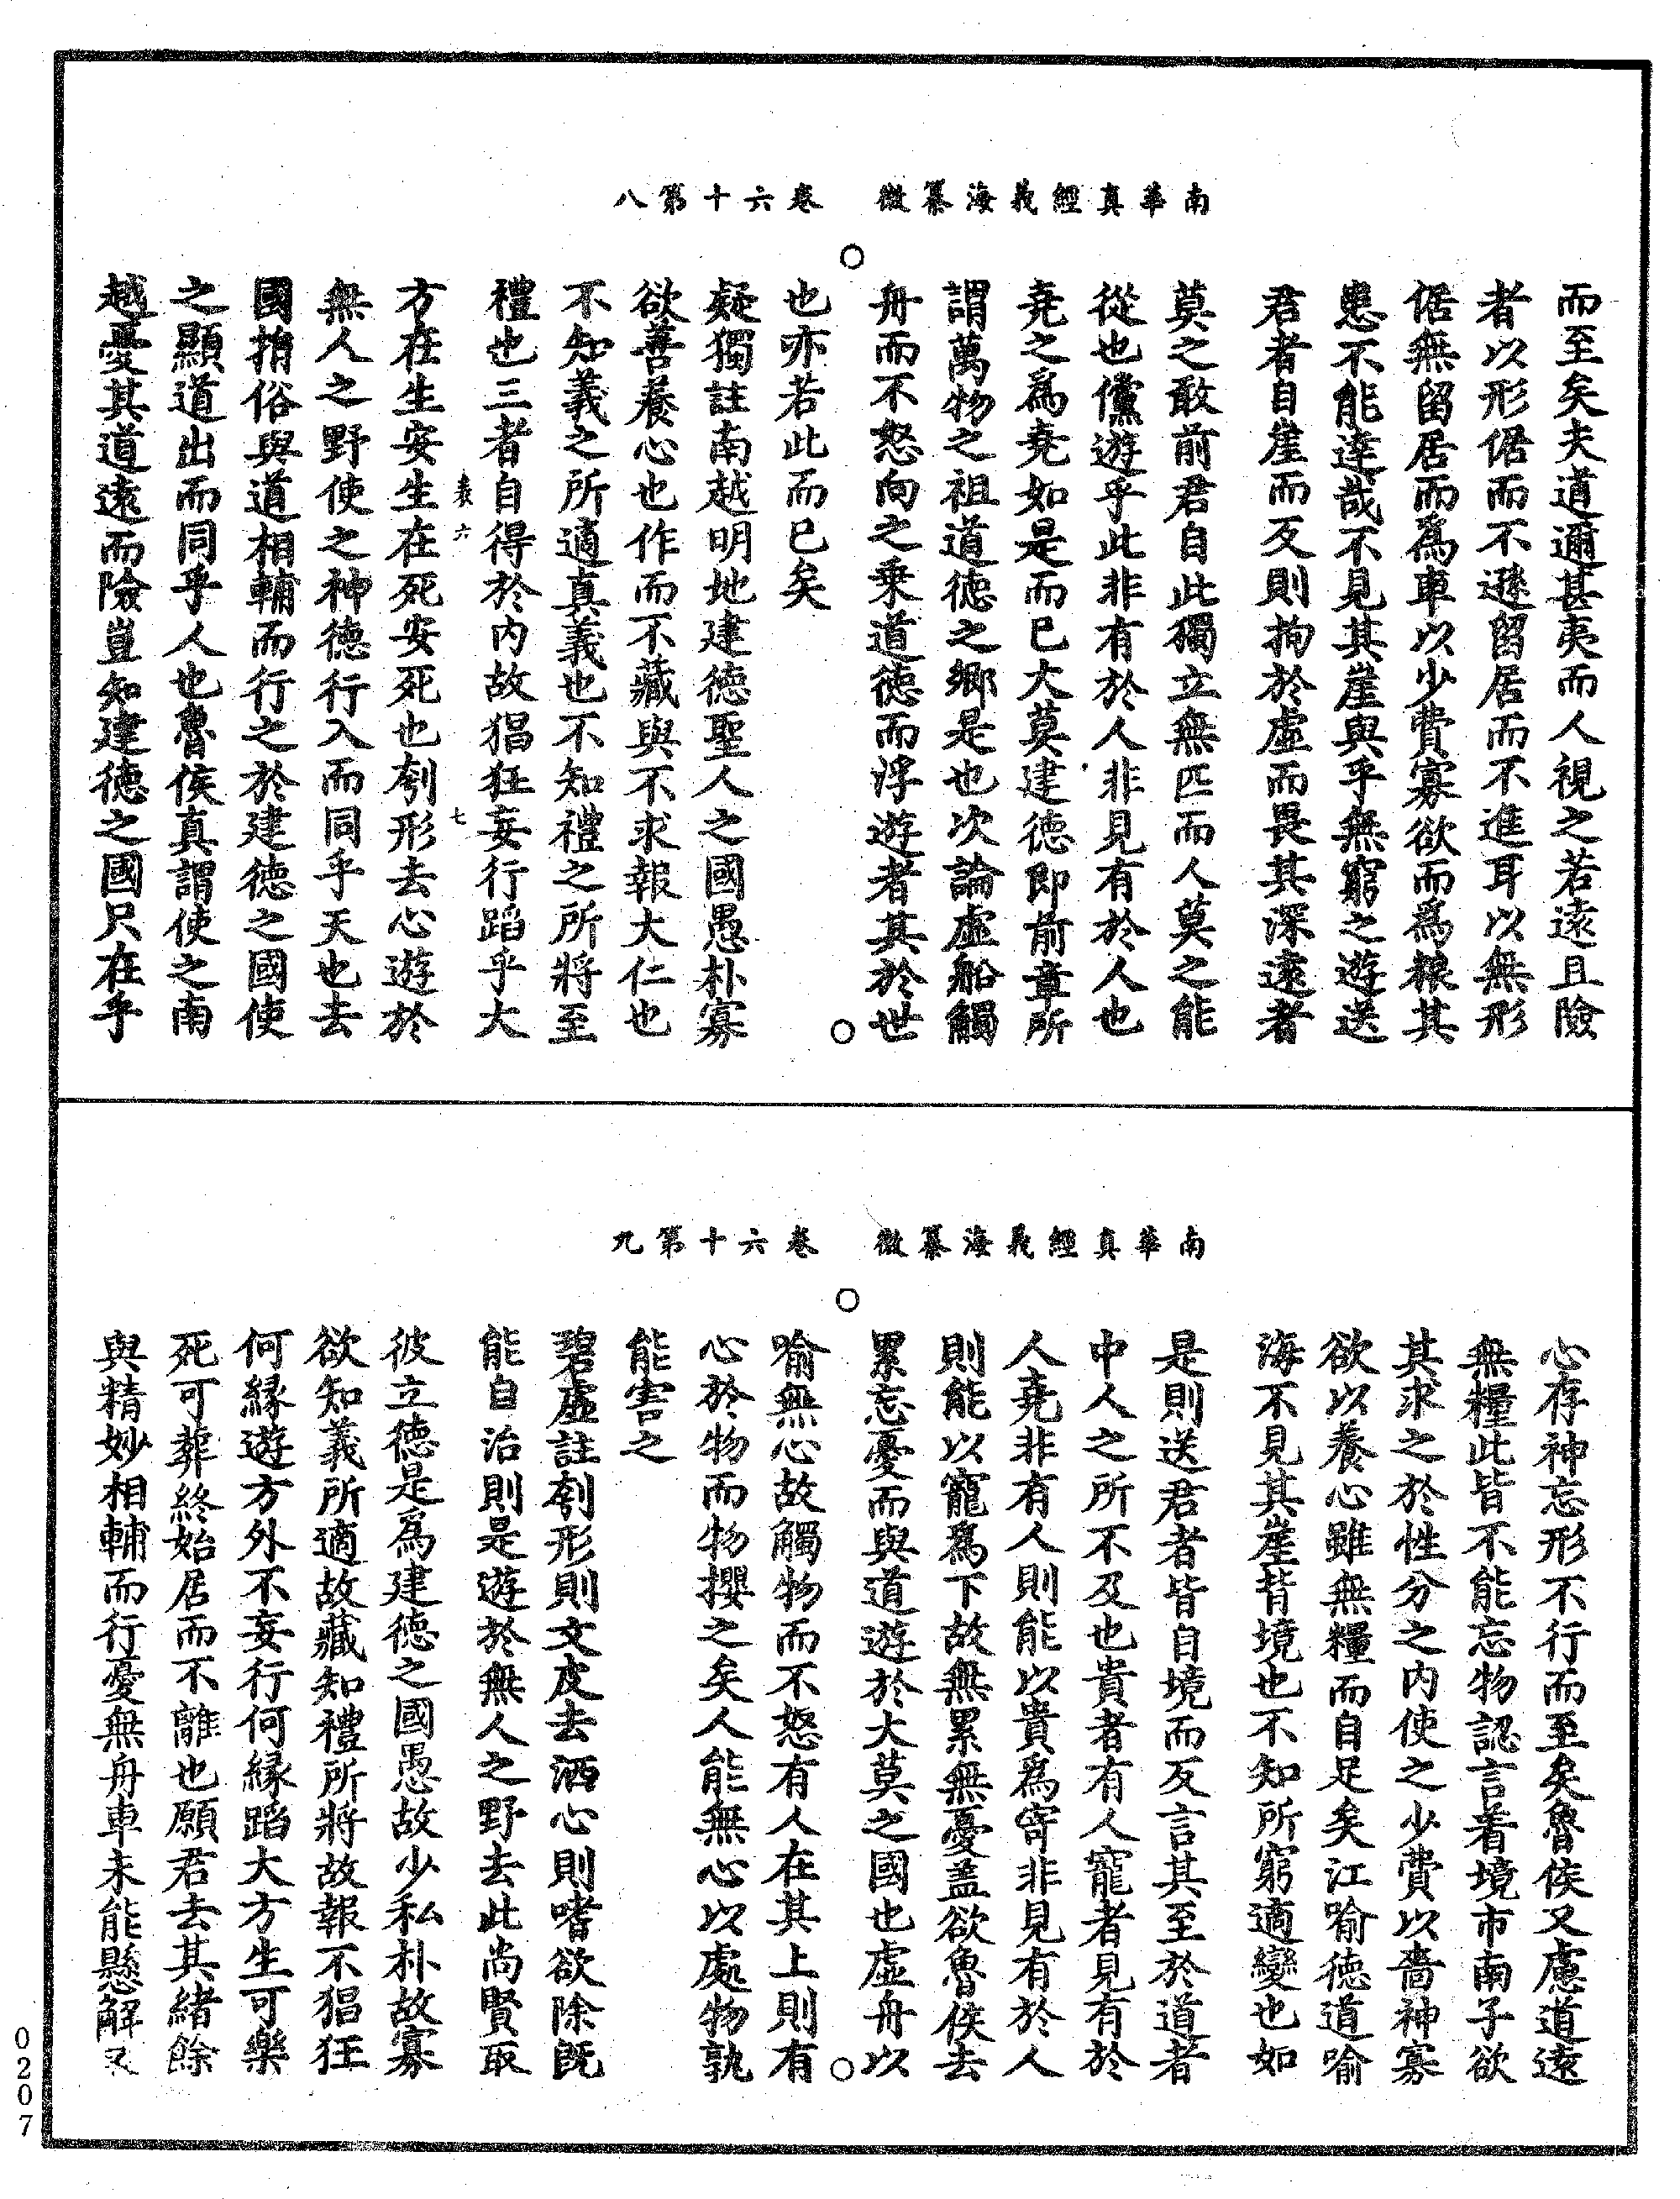 南華真經義海纂微　卷六十第八
而至矣夫道邇甚夷而人視之若遠且險
者以形倨而不遜留居而不進耳以無形
倨無留居而為車以少費寡欲而為糧其
患不能達哉不見其崖與乎無窮之遊送
君者自崖而反則拘於虛而畏其深遠者
莫之敢前君自此獨立無匹而人莫之能
從也儻遊乎此非有於人非見有於人也
堯之為堯如是而已大莫建德即前章所
謂萬物之祖道德之鄉是也次論虛船觸
舟而不怒向之乘道德而浮遊者其於世
也亦若此而已矣
疑獨註南越明地建德聖人之國愚朴寡
欲善養心也作而不藏與不求報大仁也
不知義之所適真義也不知禮之所將至
禮也三者自得於內故猖狂妄行蹈乎大
表六　七
方在生安生在死安死也刳形去心遊於
無人之野使之神德行入而同乎天也去
國捐俗與道相輔而行之於建德之國使
之顯道出而同乎人也魯侯真謂使之南
越憂其道遠而險豈知建德之國只在乎
南華真經義海纂微　卷六十第九
心存神忘形不行而至矣魯侯又慮道遠
無糧此皆不能忘物認言着境市南子欲
其求之於性分之內使之少費以嗇神寡
欲以養心雖無糧而自足矣江喻德道喻
海不見其崖背境也不知所窮適變也如
是則送君者皆自境而反言其至於道者
中人之所不及也貴者有人寵者見有於
人堯非有人則能以貴為寄非見有於人
則能以寵為下故無累無憂盖欲魯侯去
累忘憂而與道遊於大莫之國也虛舟以
喻無心故觸物而不怒有人在其上則有
心於物而物攖之矣人能無心以處物孰
能害之
碧虛註刳形則文皮去洒心則嗜欲除既
能自治則是遊於無人之野去此尚賢取
彼立德是為建德之國愚故少私朴故寡
欲知義所適故藏知禮所將故報不猖狂
何緣遊方外不妄行何緣蹈大方生可樂
死可葬終始居而不離也願君去其緒餘
與精妙相輔而行憂無舟車未能懸解又
0207